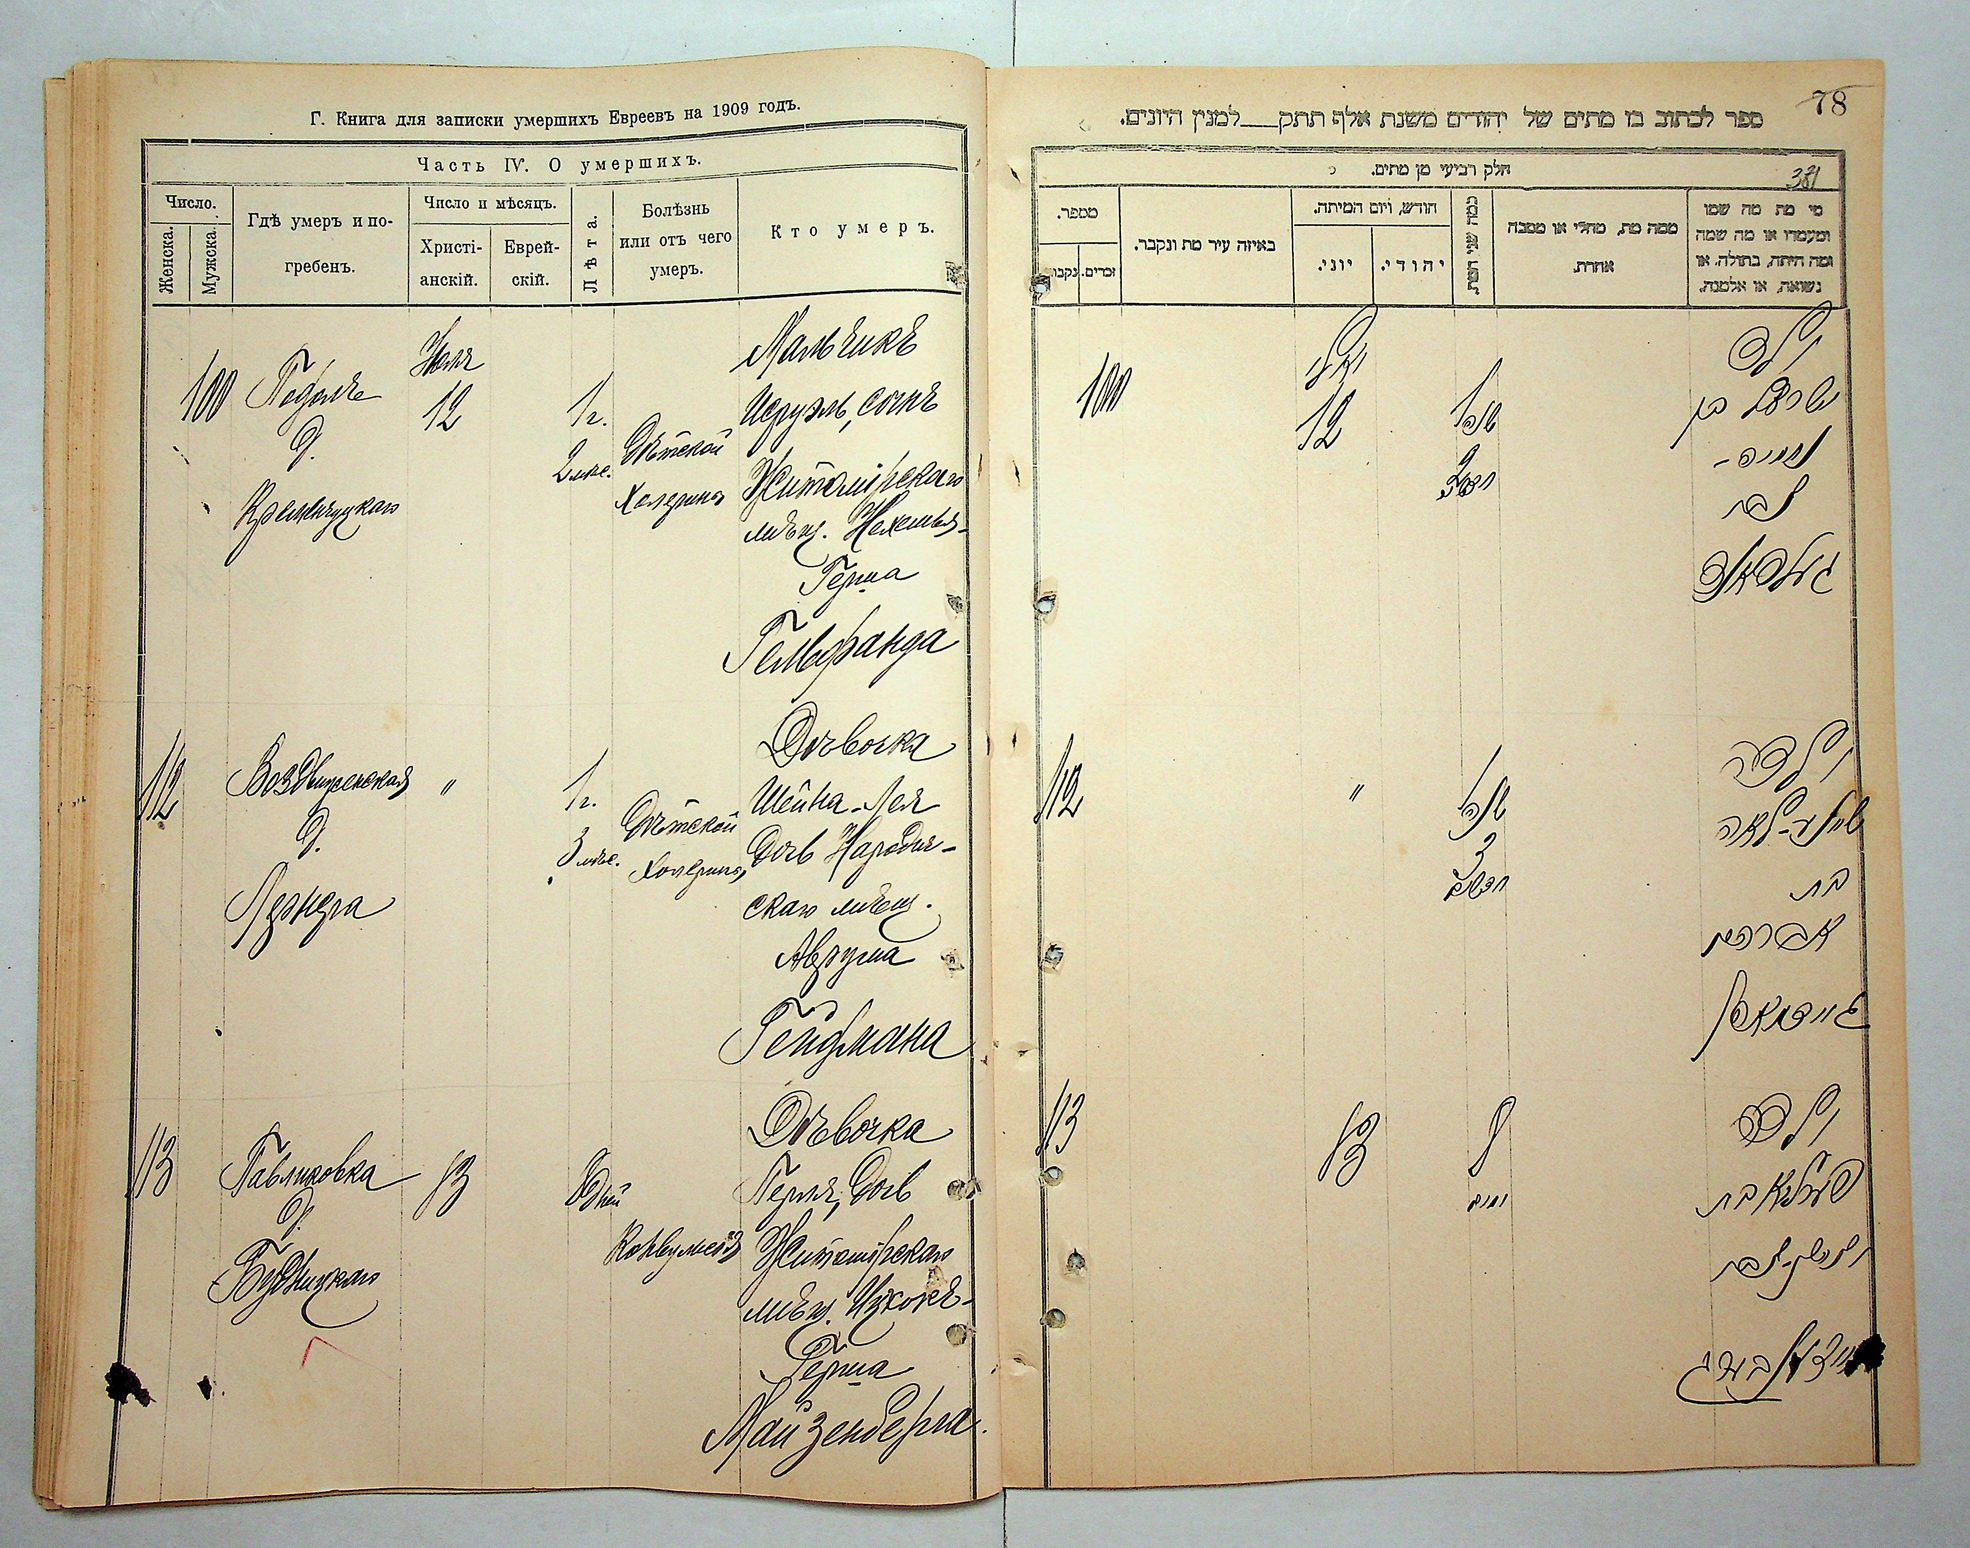 Г. Книга для записки умершихъ Евреевъ на 1909 годъ.
Часть IV. О умершихъ.
Число.
Женска.
Мужска.
Гдѣ умеръ и по-
гребенъ.
Число и мѣсяцъ.
Христі-
анскій.
Еврей-
скій.
Лѣта.
Болѣзнь
или отъ чего
умеръ.
Кто умеръ.
100
Подоль
д.
Кременчуцкаго
Июля
12
1 г.
2 мѣс.
Дѣтской
Холерины
Мальчикъ
Исруэль, сынъ
Житомірскаго
мѣщ. Нехемья-
Герша
Гельфанда
112
Воздвиженская
д.
Лернера
"
1 г.
3 мѣс.
Дѣтской
Холерины
Дѣвочка
Шейна-Лея
дочь Народич-
скаго мѣщ.
Аврума
Гейфмана
113
Павликовка
д.
Будницкаго
13
8 дней
Конвульсія
Дѣвочка
Перля, дочь
Житомірскаго
мѣщ. Ицхокъ-
Герша
Майзенберга.
78
ספר לכתוב בו מתים של יהודים משנת אלף תתק___למנין היונים.
חלק רביעי מן מתים.
381
מספר.
זכרים.
נקבו
באיזה עיר מת ונקבר.
חודש, ויום המיתה.
יוני.
יהודי.
כמה שני המת.
ממה מת, מחלי או מסבה
אחרת.
מי מת מה שמו
ומעמדו או מה שמה
ומה היתה, בתולה. או
נשואה, או אלמנה.
100
יולי
12
1 שנה
2 חדש
ילד
ישראל בן
נחמיה-
צבי
געלפאנד
112
"
1 שנה
3
חדשים
ילדה
שיינע-לאה
בת
אברהם
גייפמאן
113
13
8
ימים
ילדה
פערליא בת
יצחק-צבי
מייזענבערג